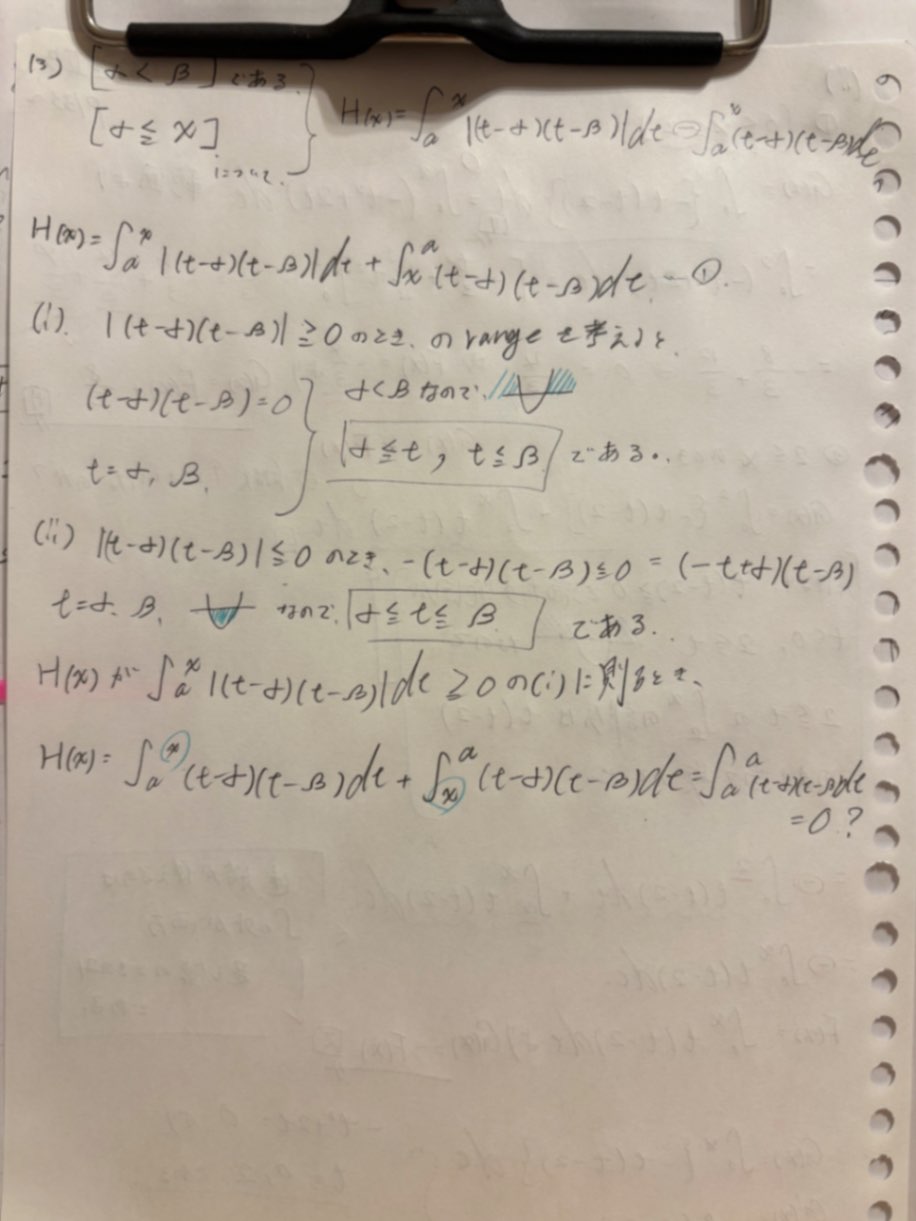 (3) [α < β] である
[α ≦ x] について.
H(x) = ∫ₐˣ |(t-α)(t-β)|dt - ∫ₐˣ (t-α)(t-β)dt,
H(x) = ∫ₐˣ |(t-α)(t-β)|dt + ∫ₓᵃ (t-α)(t-β)dt. -①.
(i). |(t-α)(t-β)| ≧ 0 のとき. の range を考えると.
(t-α)(t-β) = 0
α<β なので.
t = α, β.
α ≦ t, t ≦ β である..
(ii) |(t-α)(t-β)| ≦ 0 のとき、 -(t-α)(t-β) ≦ 0 = (-t+α)(t-β)
t = α. β. なので. α ≦ t ≦ β である.
H(x) が ∫ₐˣ |(t-α)(t-β)|dt ≧ 0 の (i) に則るとき、
H(x) = ∫ₐˣ (t-α)(t-β)dt + ∫ₓᵃ (t-α)(t-β)dt = ∫ₐᵃ (t-α)(t-β)dt
= 0 ?